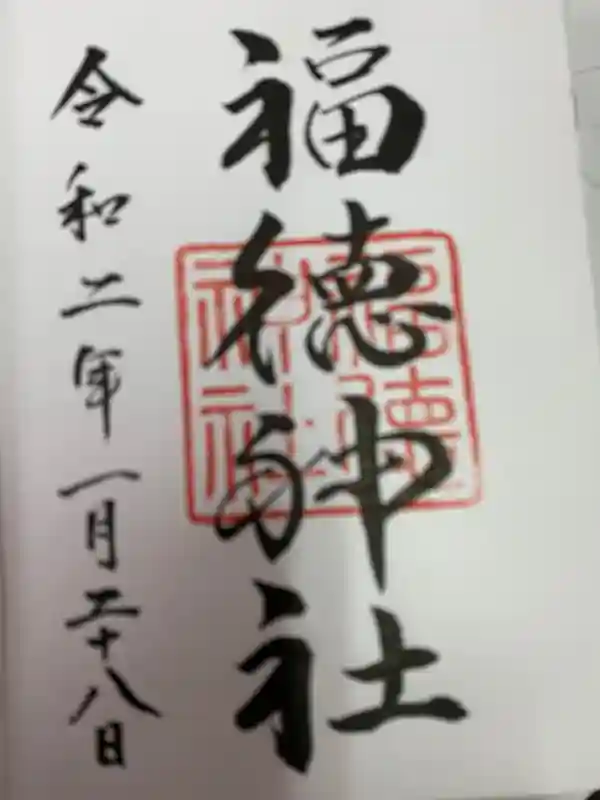 福徳神社
福徳
神社
令和二年一月二十八日